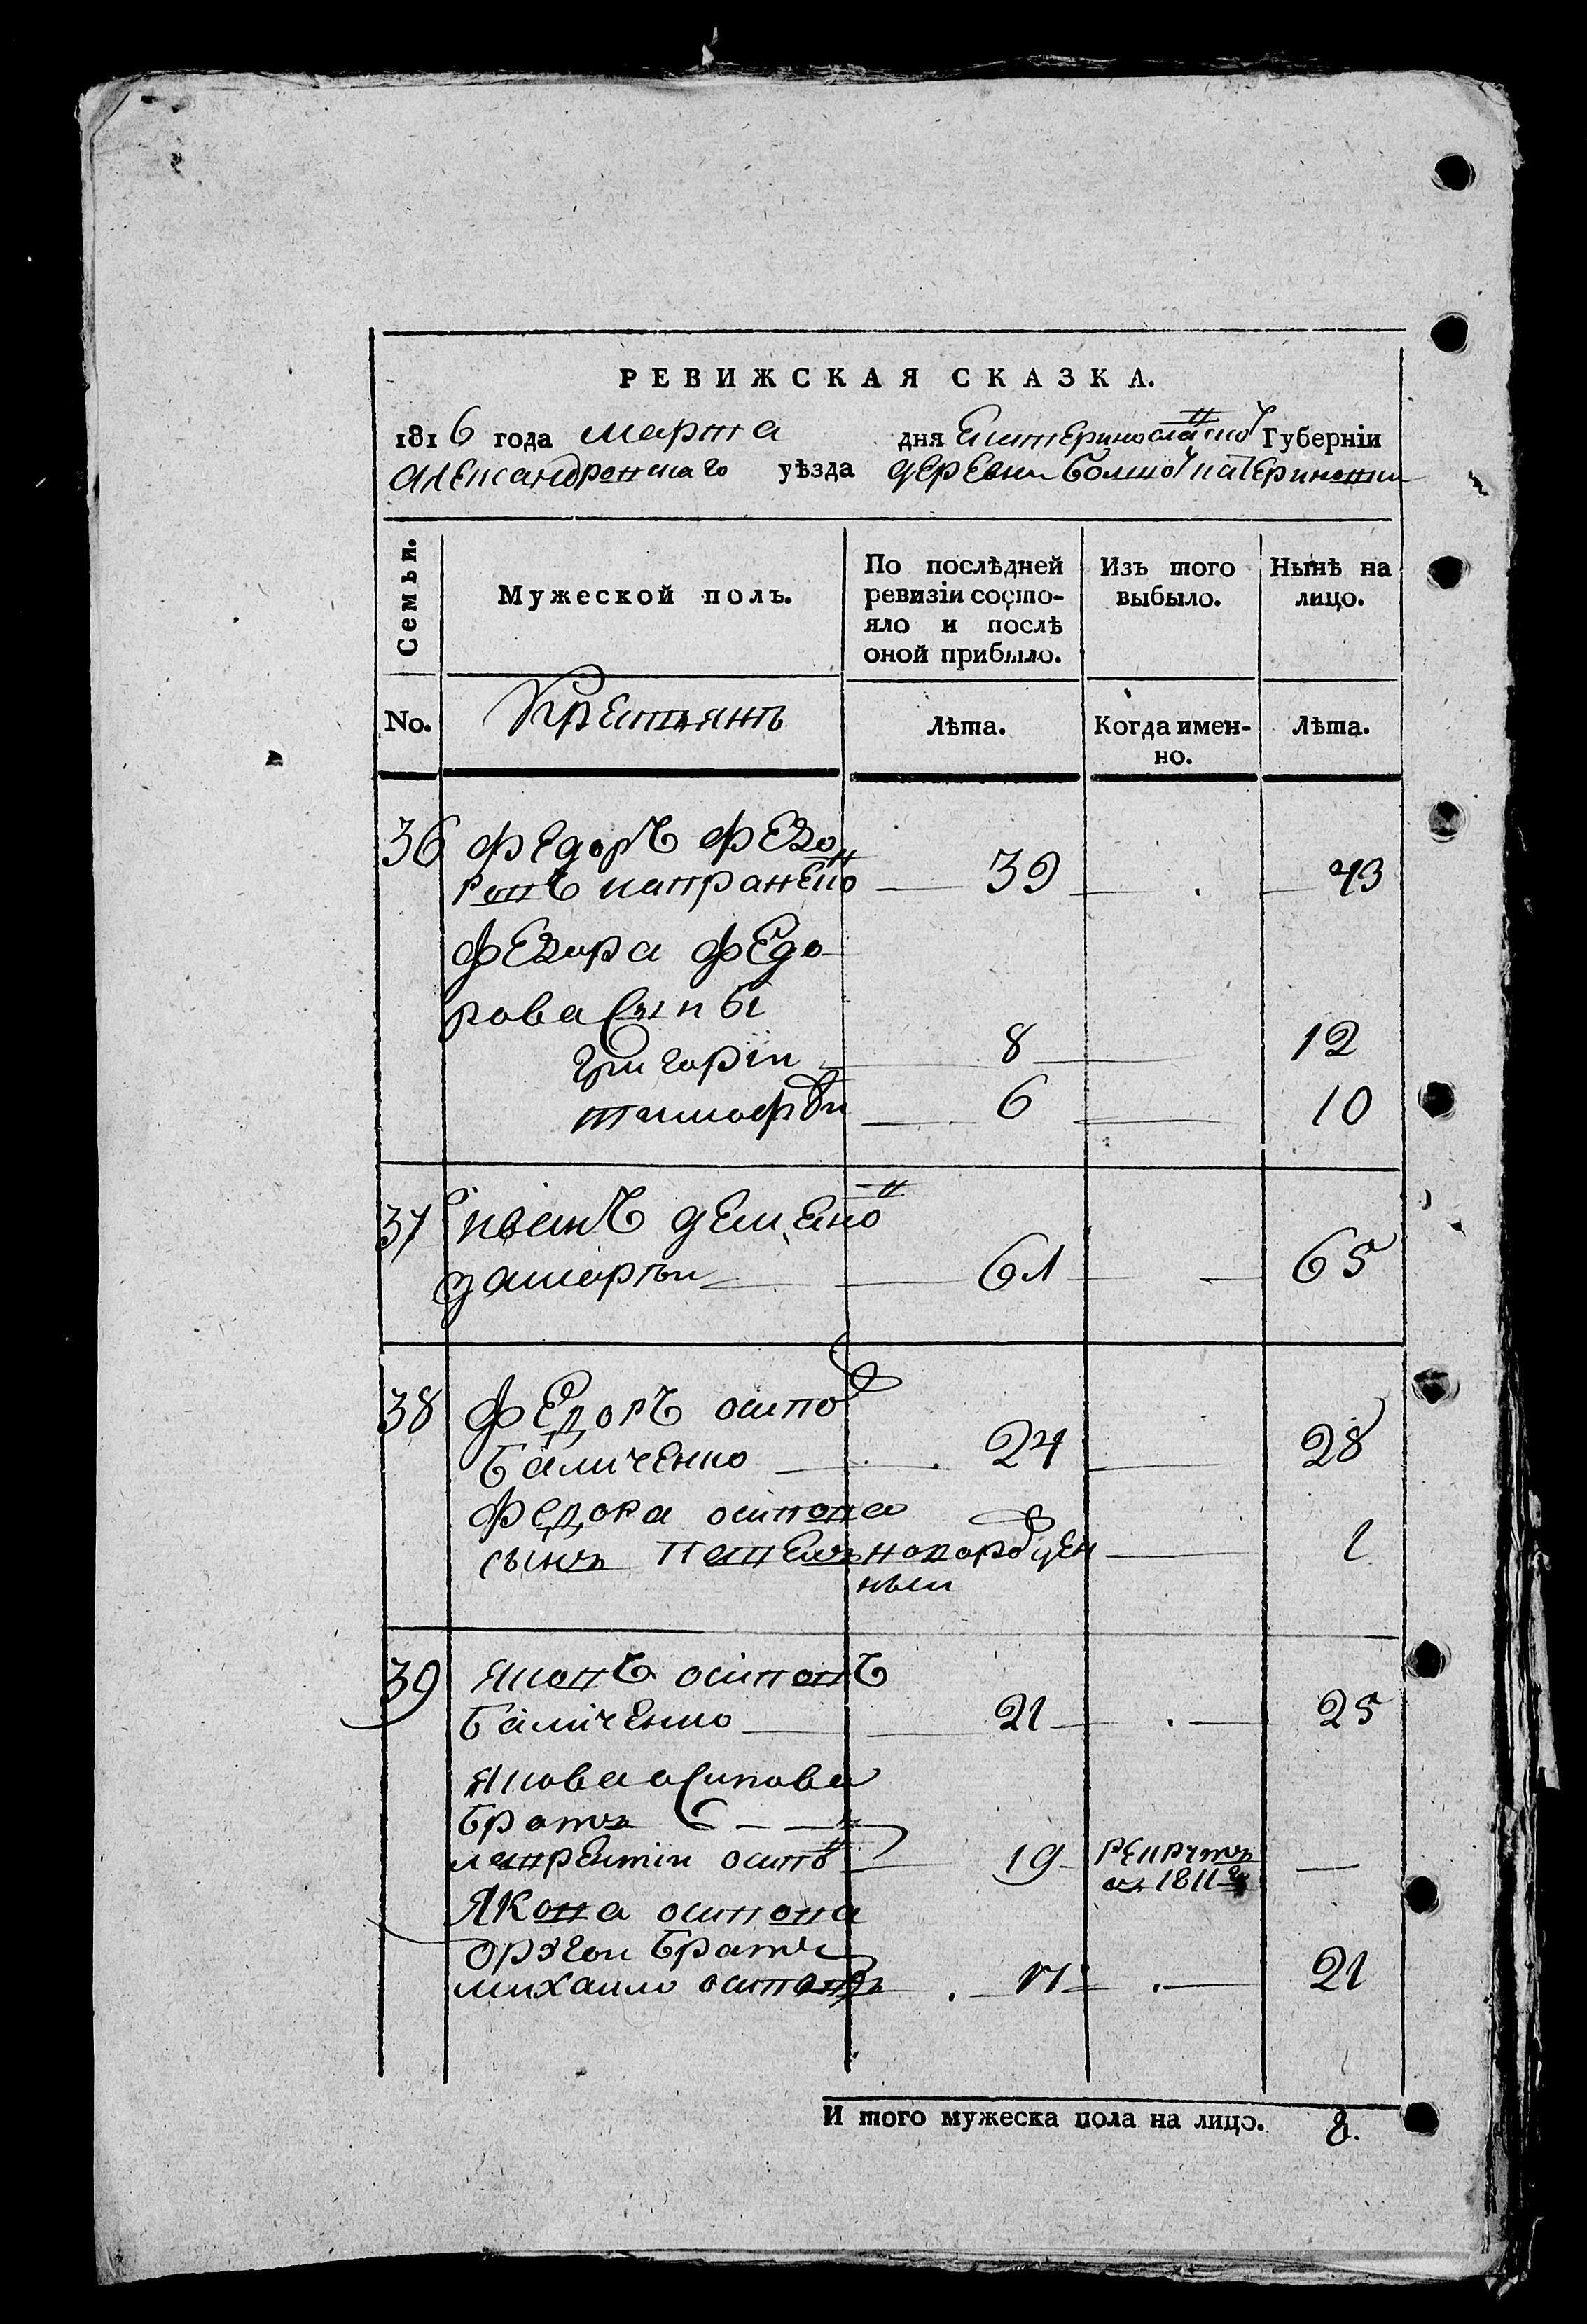 РЕВИЖСКАЯ СКАЗКА.
1816 года марта дня Екатеринославской Губерніи
Александровскаго уѣзда деревни Болшой катериновки
Семьи. Мужеской полъ. По послѣдней ревизіи состо-яло и послѣ оной прибыло. Изъ того выбыло. Нынѣ на лицо.
No. Крестьянъ Лѣта. Когда имен-но. Лѣта.
36 Федоръ Федо
ровъ 39 43
Федора Федо
рова Сыны
Григорій 8 12
тимофѣи 6 10
37 Иванъ
61 65
38 Федоръ осипов
Баличенко 24 28
Федора осипова
сынъ Павелъ новорожден 1
ныи
39 Яковъ осиповъ
Баличенко 21 25
Якова осипова
братъ
лаврентіи осипов 19 рекрутъ
въ 1811 г
Якова осипова
другои братъ
михаило осиповъ 17 21
И того мужеска пола на лицо. 8.